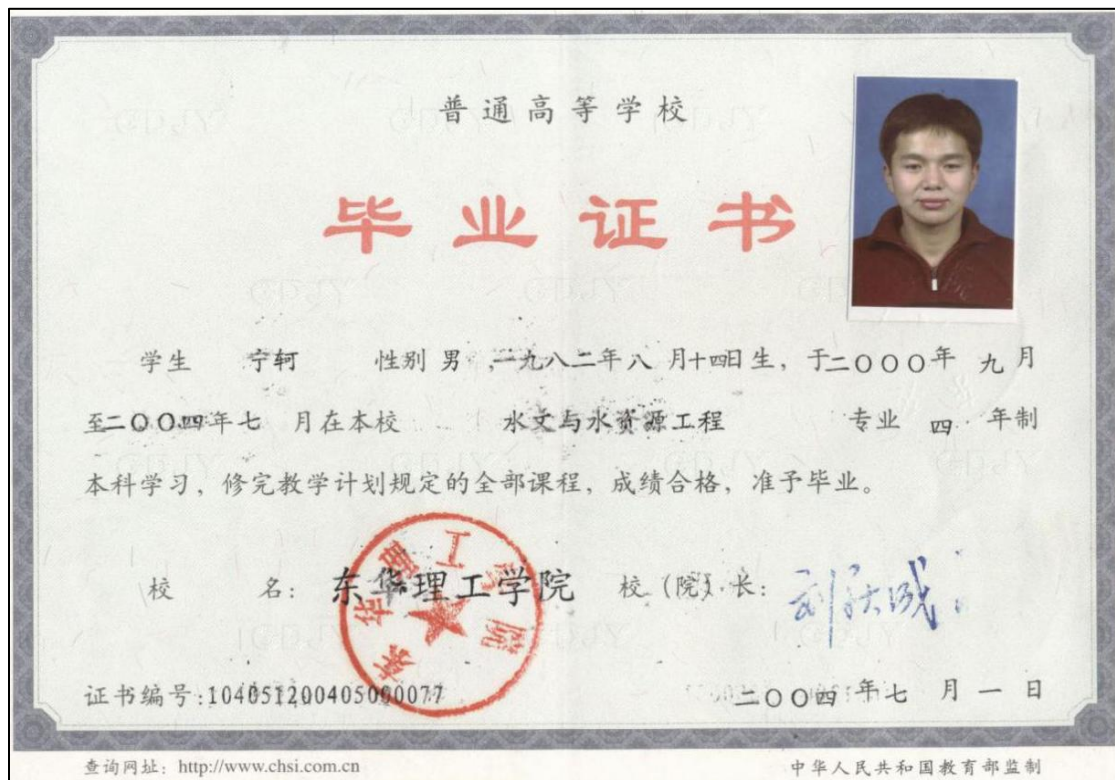 普通高等学校
毕业证书
学生 宁轲 性别 男 ,一九八二年八 月十四日生，于二〇〇〇年 九月
至二〇〇四年七 月在本校 水文与水资源工程 专业 四 年制
本科学习，修完教学计划规定的全部课程，成绩合格，准予毕业。
校 名：东华理工学院 校（院）长：
东华理工学院
证书编号:104051200405000077 二〇〇四 年七 月 一 日
查询网址：http://www.chsi.com.cn 中华人民共和国教育部监制